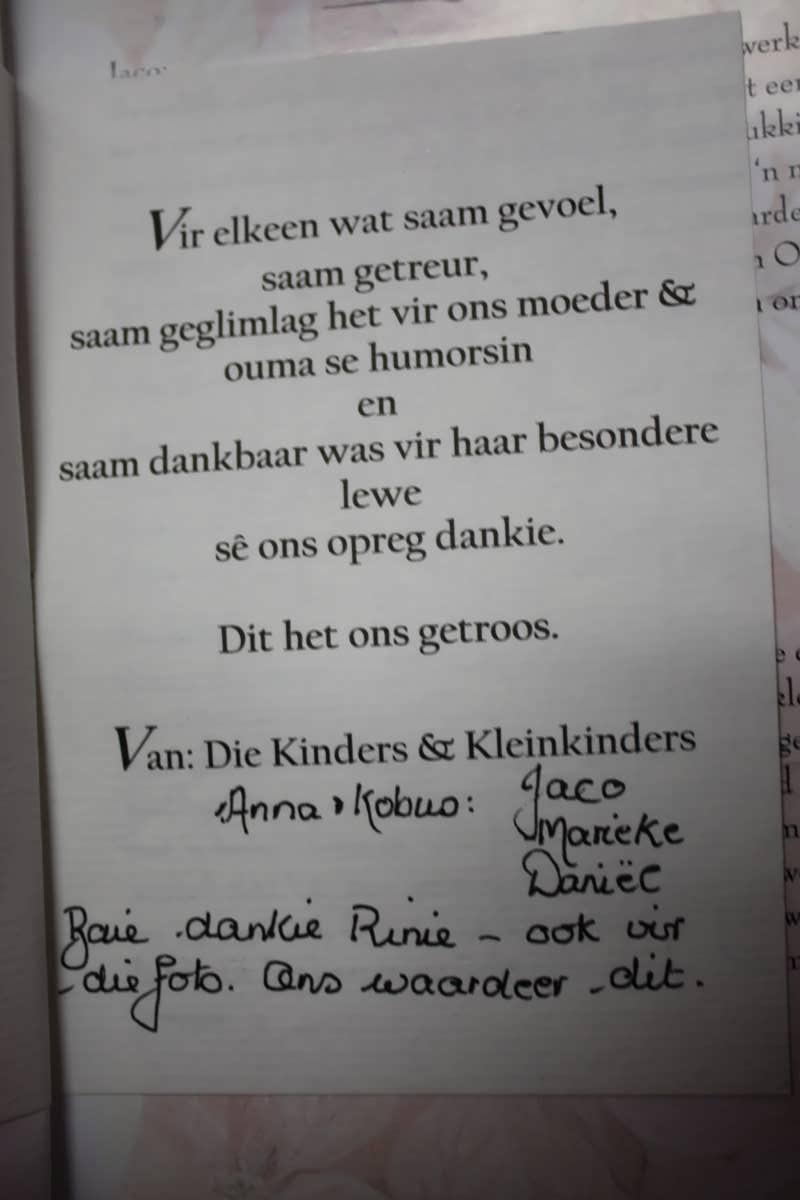 Vir elkeen wat saam gevoel,
saam getreur,
saam geglimlag het vir ons moeder &
ouma se humorsin
en
saam dankbaar was vir haar besondere
lewe
sê ons opreg dankie.
Dit het ons getroos.
Van: Die Kinders & Kleinkinders
Anna Kobuo: Jaco
Marieke
Daniël
Baie dankie Rinie - ook vir
die foto. Ons waardeer dit.